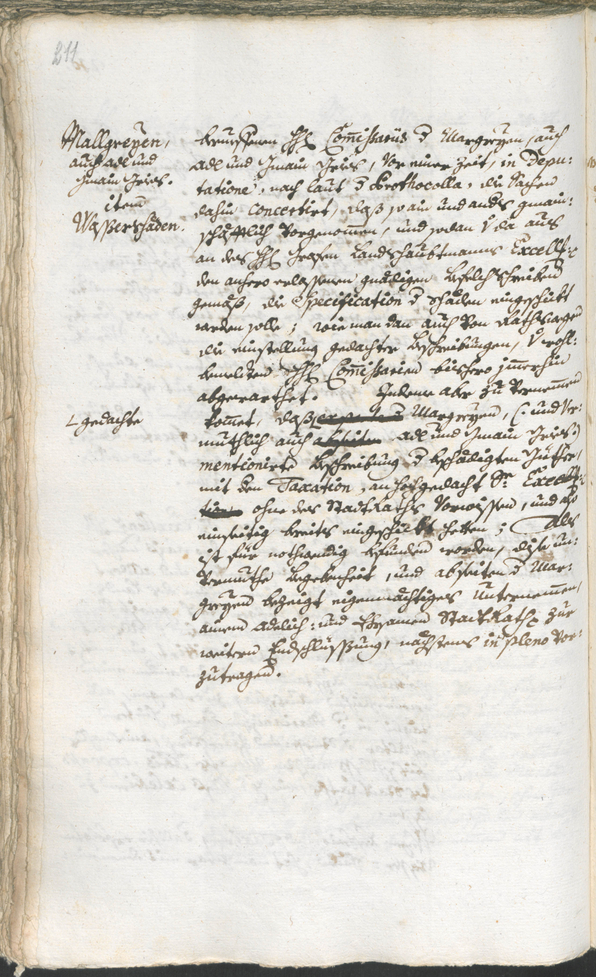 211
Mallgreyen,
auch adl und
gmain Gries.
item
Wasserschäden.
bemelten HH. Commissarius d Margreyen, auch
adl und gmain Gries, vor einer Zeit, in Depu:
tatione, nach laut d Prothocolla, die Sachen
dahin concertirt, daß ain und ands gmain:
schäfftlich vorgenomen, und sodan V da aus
an des HH. Grafen Landtshaubtmanns Excell:
den anhero erlassenen gnädigen Befelchschreiben
gemäß, die Specification d Schäden eingeschickt
werden solle; wie man dan auch von Rathswegen
die einstellung gedachter Beschreibungen, V wohl:
bemelten HH. Commissarien bishero immerhin
abgewarthet. Indeme aber zu vernemmen
∟ gedachte
kommet, daß Margreyen, (: und ver:
muthlich auch adl und gmain Gries :)
mentionirte Beschreibung d beschädigten Gütter,
mit den Taxation, an hochgedacht Sr. Excell:
ohne des Stadt Raths Vorwissen, und also
einseitig bereits eingeschickt heten; Als
ist für nothwendig befunden worden, dise un:
vermuthe Begebenheit, und abseiten d Mar:
greyen bezeigt eigenmächtiges Unternemmen,
ainem adelich: und Ersamen Stadt Rath zur
weitern Endschlüssung, nächstens in pleno vor:
zutragen.